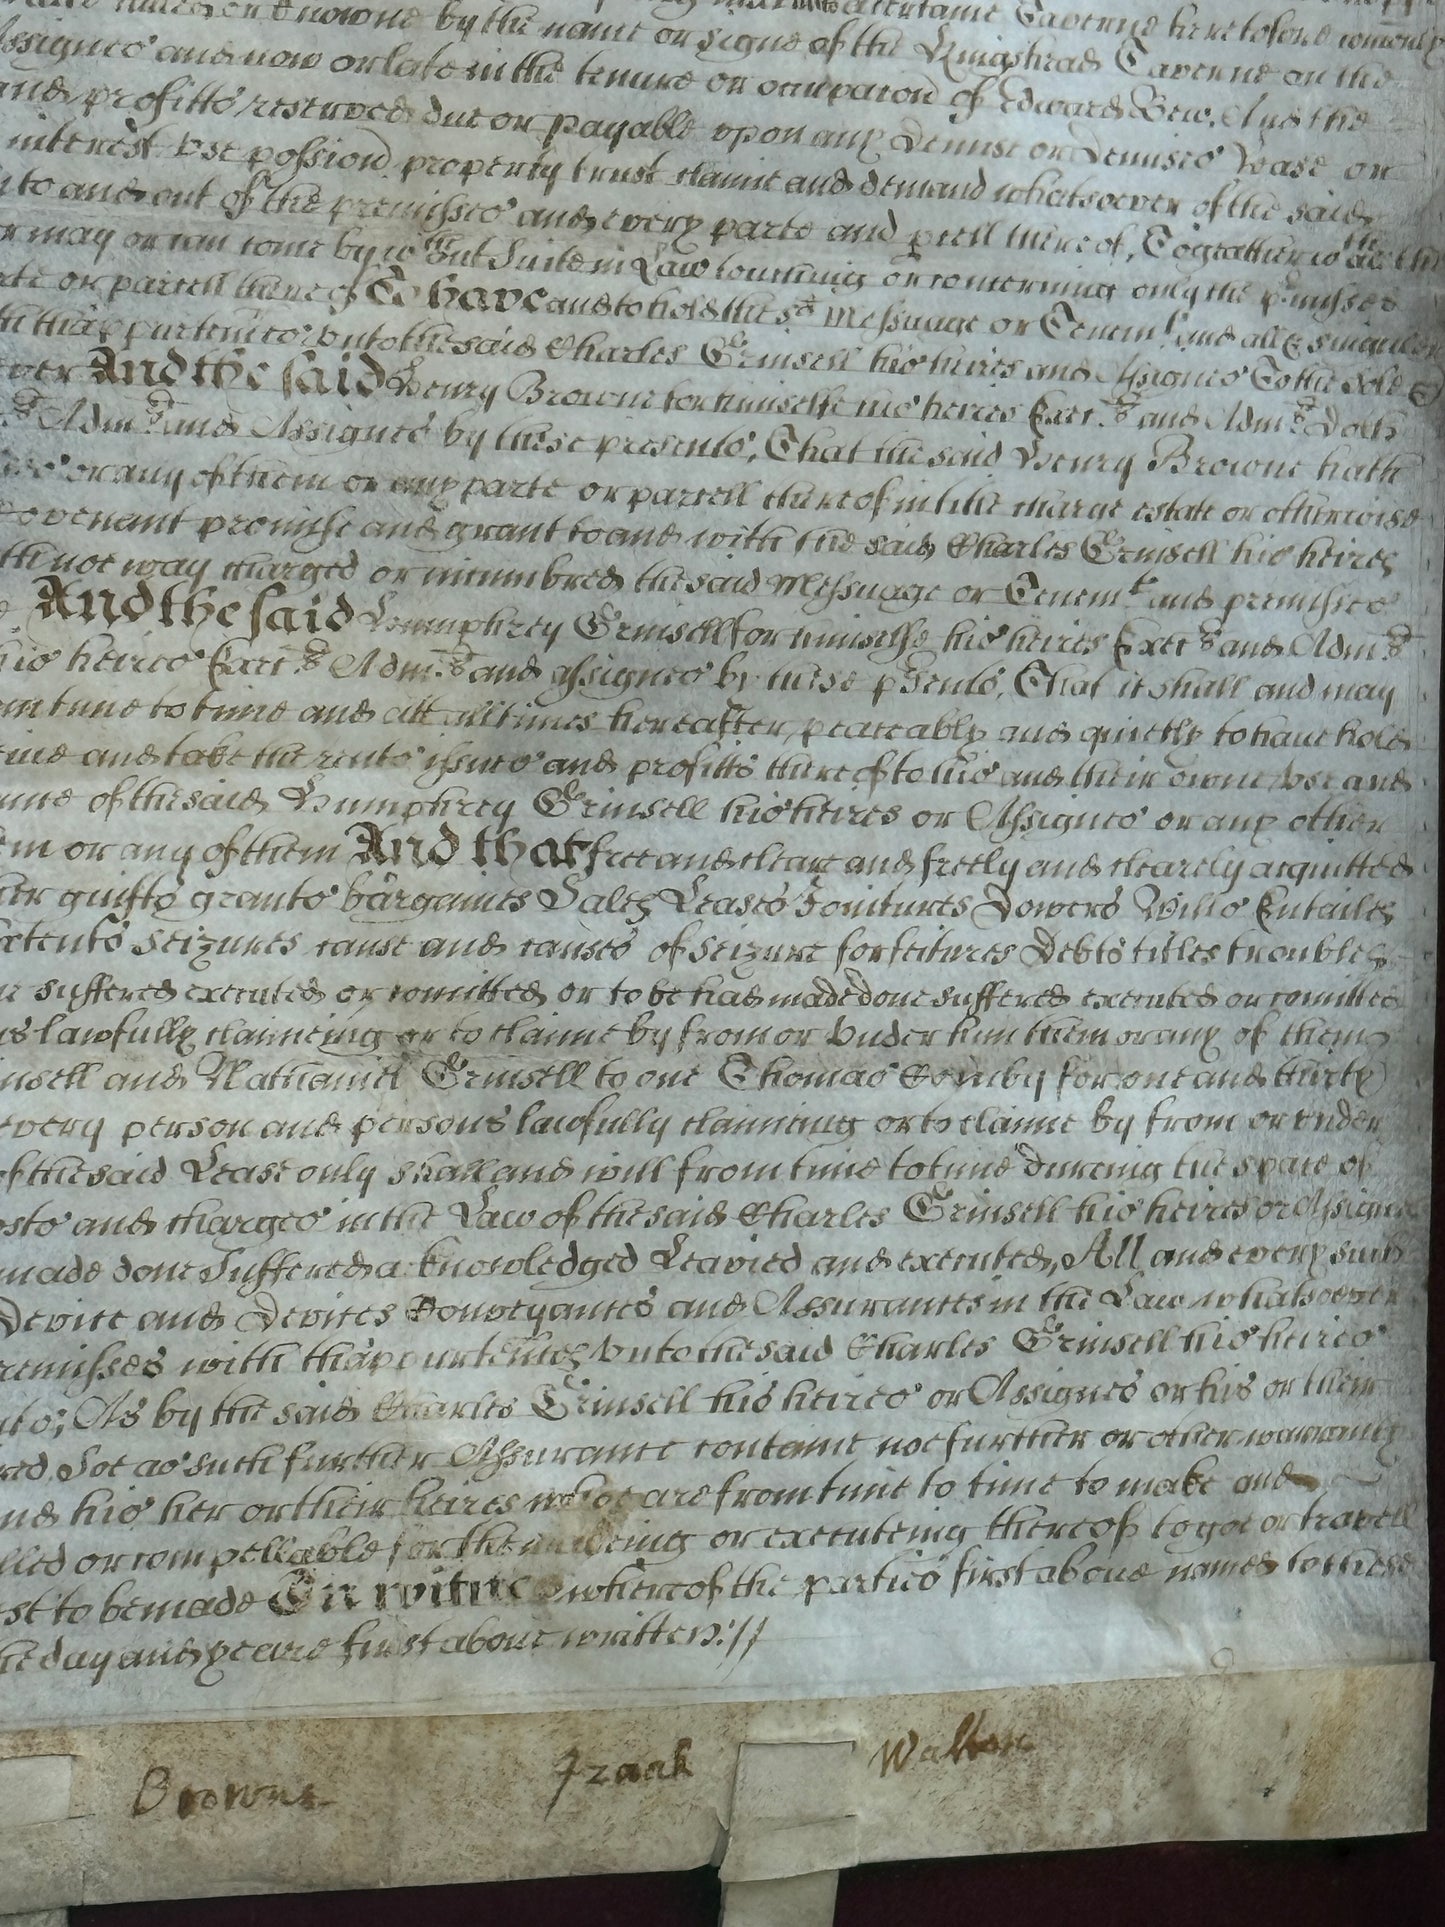 knowne by the name or signe of the Kingshead Taverne on the
Assignes and now or late in the tenure or occupacon of Edward Bew, And the
and profitts reserved due or payable vpon any Demise or Demises Lease or
interest vse possion property trust claime and demand whatsoever of the said
to and out of the premisses and every parte and pcell thereof, Togeather wth all the
or may or can come by wthout Suite in Law touching or concerning only the pmisses
or parcell thereof To have and to hold the sd Messuage or Tenemt and all & singuler
thappurtennces vnto the said Charles Grinsell his heires and Assignes To the sole
ever And the said Henry Browne for himselfe his heires Exectrs and Admrs Doth
Admrs and Assignes by these presents, That the said Henry Browne hath
or any of them or any parte or parcell thereof in title charge estate or otherwise
Covenant promise and grant to and with the said Charles Grinsell his heires
not way charged or incumbred the said Messuage or Tenemt and premisses
And the said Humphrey Grinsell for himselfe his heires Exectrs and Admrs
his heires Exectrs Admrs and assignes by these psents, That it shall and may
time to time and att all times hereafter, peaceably and quietly to have hold
and take the rents issues and profitts thereof to his and their owne vse and
of the said Humphrey Grinsell his heires or Assignes or any other
or any of them And that free and cleare and freely and clearely acquitted
guifts grants bargaines Sales Leases Joinctures Dowers Wills Entailes
Extents seizures cause and causes of seizure forfeitures Debts titles troubles
suffered executed or comitted or to be had made done suffered executed or comitted
lawfully claimeing or to claime by from or vnder him them or any of them
and Nathaniel Grinsell to one Thomas for one and thirty
every person and persons lawfully claimeing or to claime by from or vnder
of the said Lease only shall and will from time to time dureing the space of
and charges in the Law of the said Charles Grinsell his heires or Assignes
made done Suffered acknowledged Leavied and executed, All and every such
Device and Devices Conveyances and Assurances in the Law whatsoever
premisses with thappurtennces vnto the said Charles Grinsell his heires
As by the said Charles Grinsell his heires or Assignes or his or their
Soe as such further Assurance containe noe further or other warranty
his her or their heires whoe are from time to time to make and
or compellable for the makeing or executeing thereof to goe or travell
to be made In witnes whereof the parties first above named to these
the day and yeare first above written://
Browne Izaak Walton